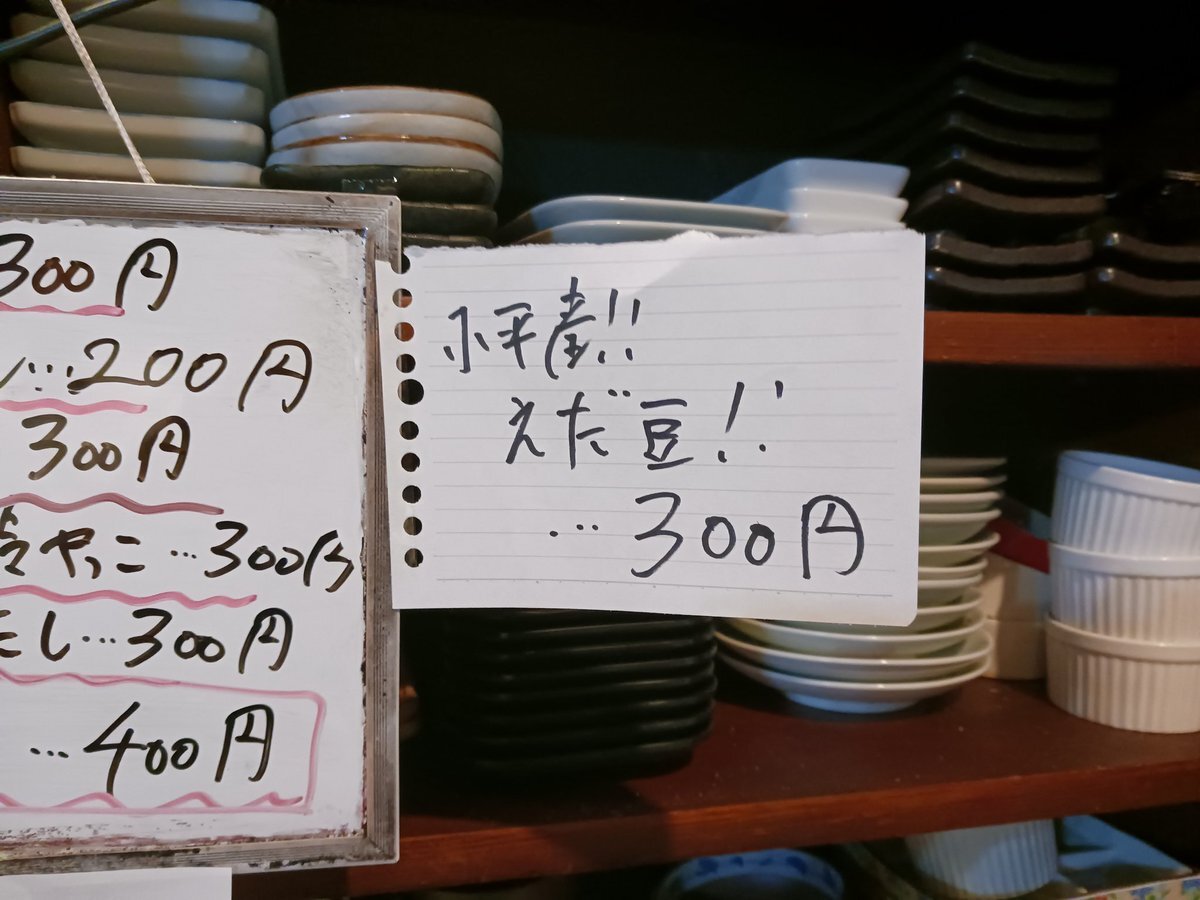 300円
…200円
300円
冷やっこ…300円
し…300円
…400円
小平産!!
えだ豆!!
…300円